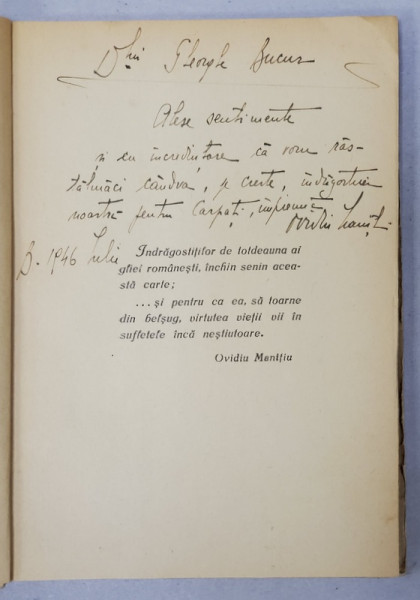 Dlui Gheorghe Bucur
Alese sentimente
și cu încredințare că vom răs-
tălmăci cândva, pe creste, îndrăgostirea
noastră pentru Carpați, împreună
Ovidiu Manițiu
B. 1946 Iulie
Indrăgostiților de totdeauna ai
gliei românești, închin senin acea-
stă carte;
... și pentru ca ea, să toarne
din belșug, virtutea vieții vii în
sufletele încă neștiutoare.
Ovidiu Manițiu